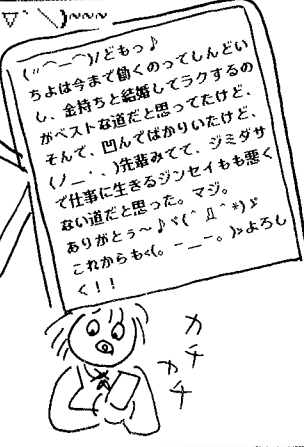 ▽｀ ＼)~~~
(〃⌒ー⌒)/どもっ♪
ちよは今まで働くのってしんどい
し、金持ちと結婚してラクするの
がベストな道だと思ってたけど、
そんで、凹んでばかりいたけど、
(ノ＿・、)先輩みてて、ジミダサ
で仕事に生きるジンセイもも悪く
ない道だと思った。マジ。
ありがとぅ〜♪ヾ(＾Д＾*)ゞ
これからも<(。￣－￣。)>よろし
く！！
カチ
カチ